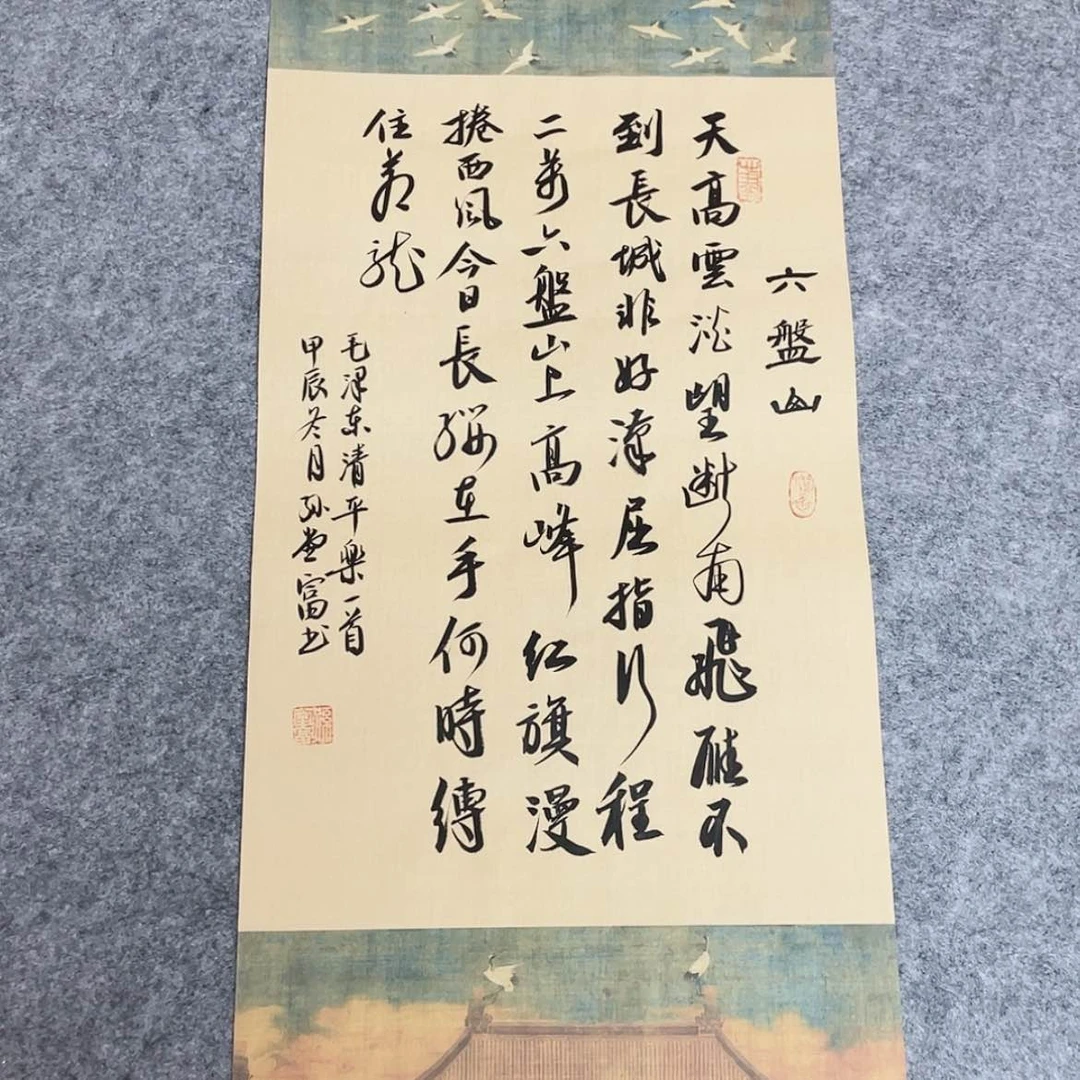 六盤山
天高雲淡望斷南飛雁不
到長城非好漢屈指行程
二萬六盤山上高峰红旗漫
捲西風今日長纓在手何時縛
住蒼龍
毛澤東清平樂一首
甲辰冬月孙堂富书